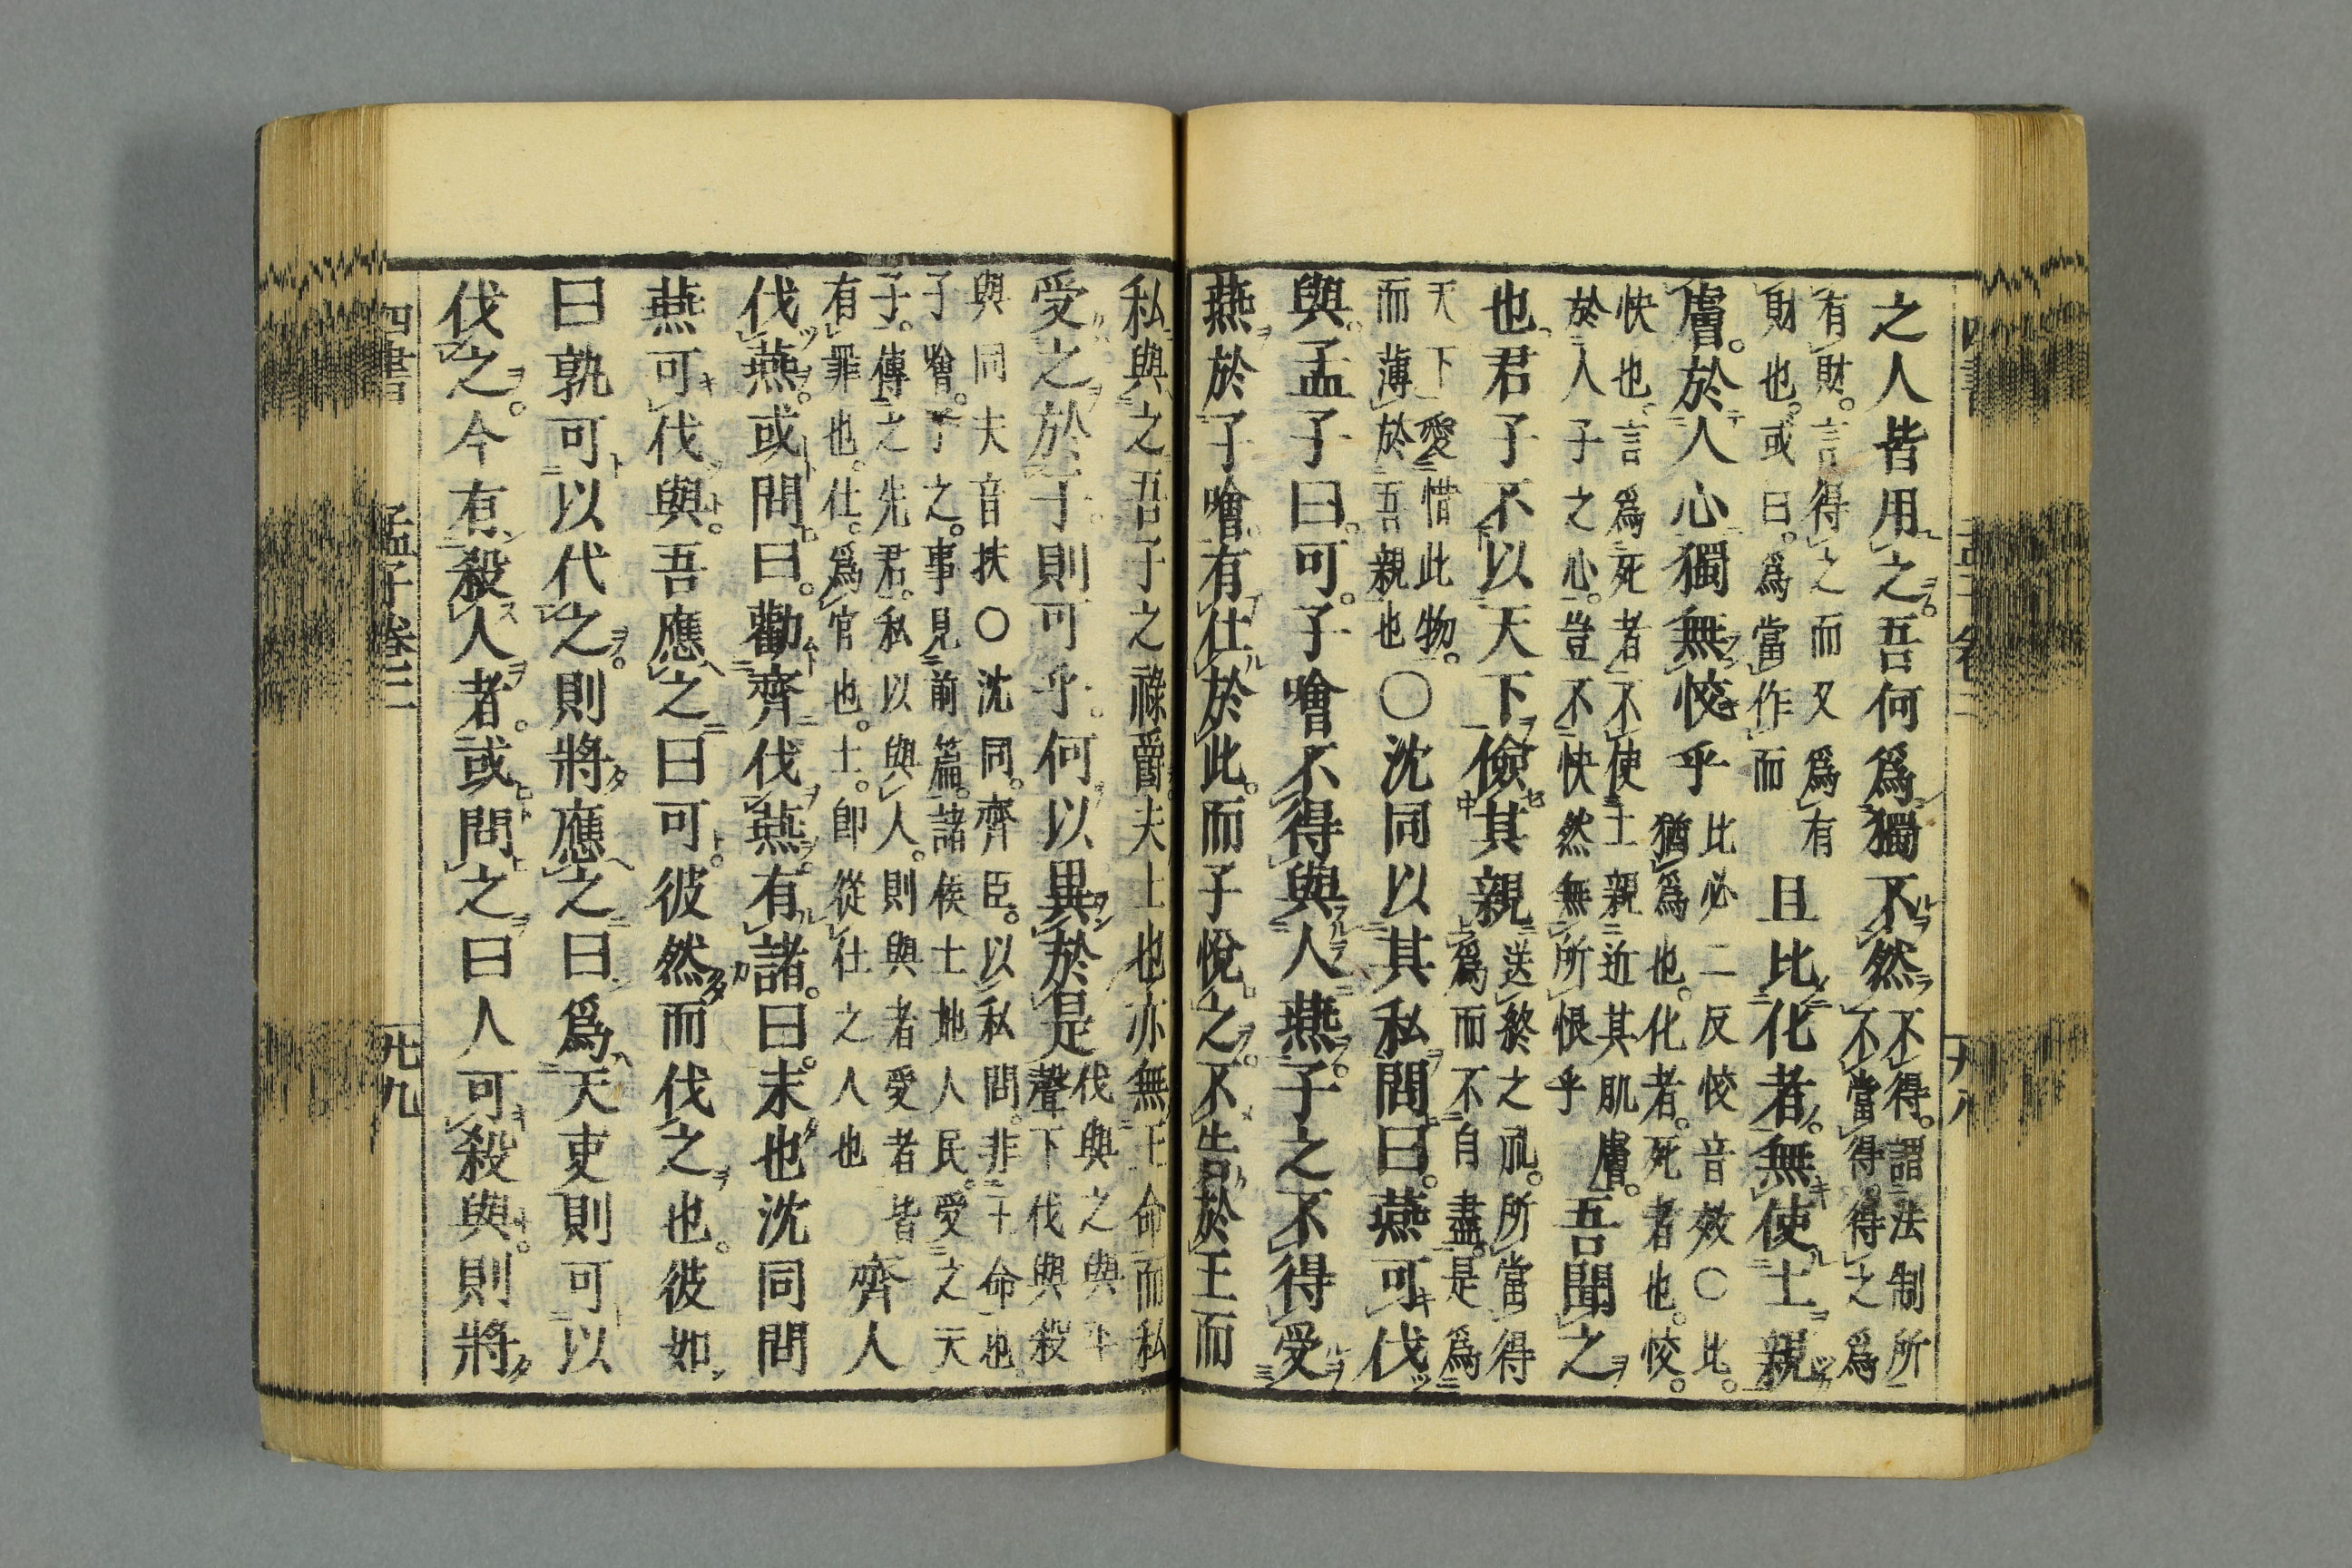 之人皆用之。吾何爲獨不然
不得。謂法制所
不當得。得之爲
有財。言得之而又爲有
財也。或曰。爲當作而
且比化者。無使土親
膚。於人心獨無恔乎
比必二反恔音效○比。
猶爲也。化者。死者也。恔。
快也。言爲死者不使土親近其肌膚。
於人子之心。豈不快然無所恨乎
吾聞之
也。君子不以天下儉其親
送終之礼。所當得
爲而不自盡。是爲
天下愛惜此物。
而薄於吾親也
○沈同以其私問曰。燕可伐
與。孟子曰。可。子噲不得與人燕。子之不得受
燕於子噲。有仕於此。而子悅之。不告於王而
私與之吾子之祿爵。夫士也亦無王命而私
受之於子。則可乎。何以異於是
伐與之與平
聲下伐與殺
與同夫音扶○沈同。齊臣。以私問。非王命也。
子噲。子之。事見前篇。諸侯土地人民。受之天
子。傳之先君。私以與人。則與者受者皆
有罪也。仕。爲官也。士。卽從仕之人也
齊人
伐燕。或問曰。勸齊伐燕。有諸。曰。未也沈同問
燕可伐與。吾應之曰可。彼然而伐之也。彼如
曰孰可以伐之。則將應之曰爲天吏則可以
伐之。今有殺人者。或問之曰人可殺與。則將
四書 孟子卷二 卄九